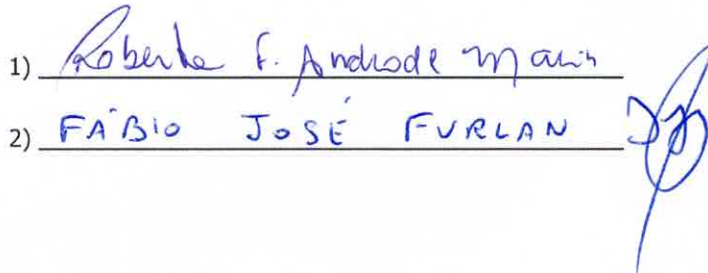 1) Roberta F. Andrade Marin
2) FÁBIO JOSÉ FURLAN